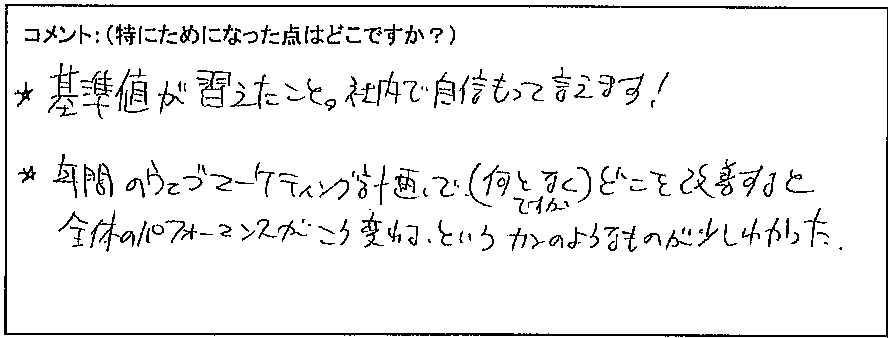 コメント：（特にためになった点はどこですか？）
★ 基準値が習えたこと。社内で自信もって言えます！
★ 年間のウェブマーケティング計画、で（何となく）どこを改善すると
ですが
全体のパフォーマンスがこう変わる、という カンのようなものが少しわかった．